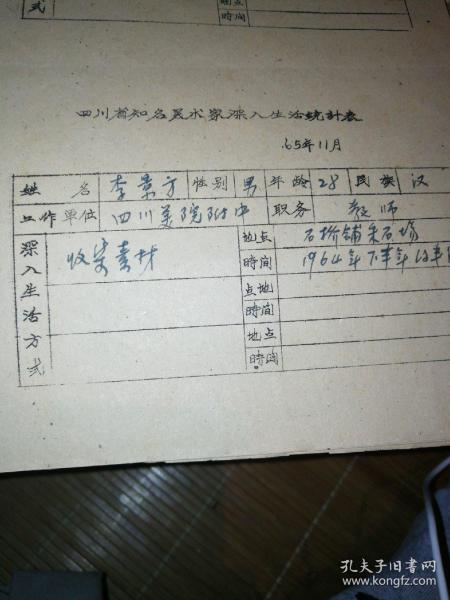 式 地点
时间
四川省知名美术家深入生活统计表
65年11月
姓名 李景方 性别 男 年龄 28 民族 汉
工作单位 四川美院附中 职务 教师
深入生活方式 收集素材 地点 石桥铺采石场
時间 1964年下半年
点地
時间
地点
時间
孔夫子旧书网
www.kongfz.com